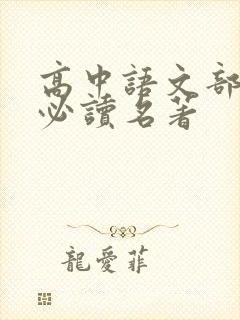 高中語文部
必讀名著
龍愛菲